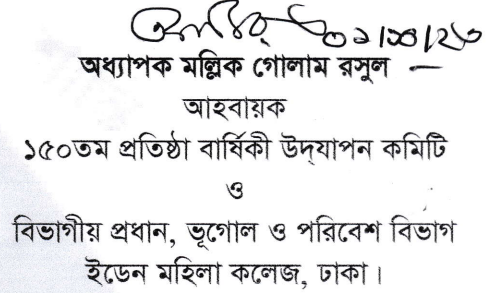 ০১/১০/২৩
অধ্যাপক মল্লিক গোলাম রসুল
আহবায়ক
১৫০তম প্রতিষ্ঠা বার্ষিকী উদ্‌যাপন কমিটি
ও
বিভাগীয় প্রধান, ভূগোল ও পরিবেশ বিভাগ
ইডেন মহিলা কলেজ, ঢাকা।